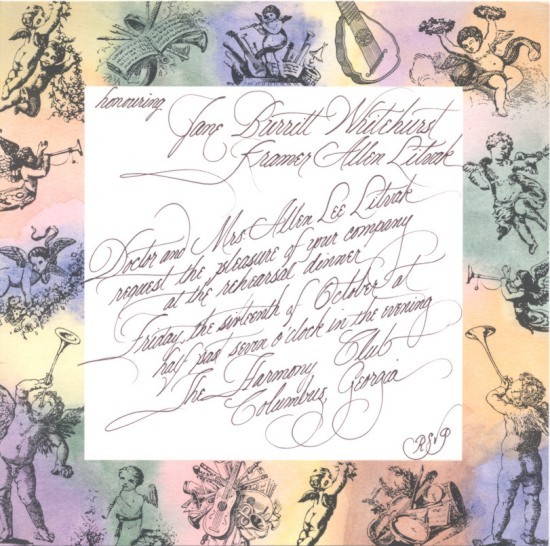 honouring
Jane Burritt Whitehurst
Kramer Allen Litvak
Doctor and Mrs Allen Lee Litvak
request the pleasure of your company
at the rehearsal dinner
Friday, the sixteenth of October at
half past seven o'clock in the evening
The Harmony Club
Columbus, Georgia
RSVP